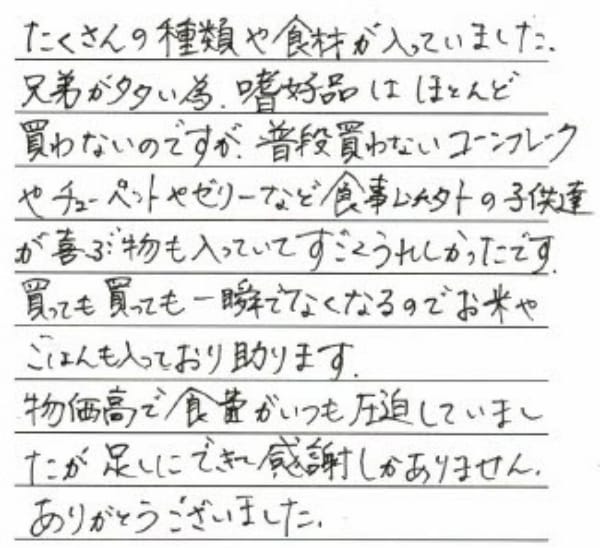 たくさんの種類や食材が入っていました.
兄弟が多い為、嗜好品はほとんど
買わないのですが、普段買わないコーンフレーク
やチューペットやゼリーなど食事以外の子供達
が喜ぶ物も入っていてすごくうれしかったです.
買っても買っても一瞬でなくなるのでお米や
ごはんも入っており助ります.
物価高で食費がいつも圧迫していまし
たが足しにできて感謝しかありません.
ありがとうございました.